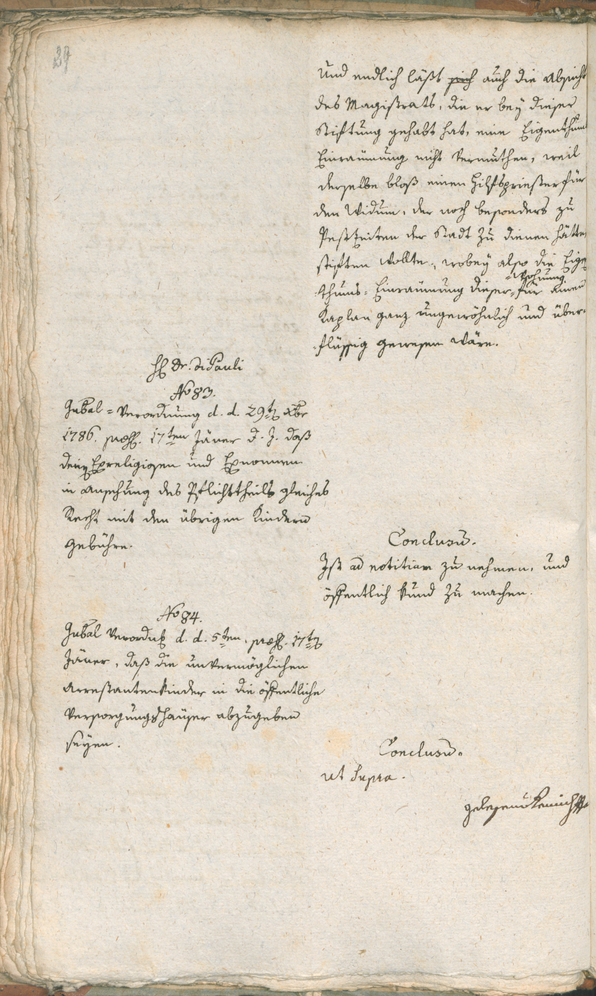 27
Und endlich läßt sich auch die Absicht
des Magistrats, die er bey dieser
Stiftung gehabt hat, eine Eigenthums
Einraumung nicht vermuthen, weil
derselbe bloß einen Hilfspriester für
den Widum, der noch besonders zu
Pestzeiten der Stadt zu dienen hätte,
stiften wollte, wobey also die Eigen-
thums-Einraumung dieser Wohnung für einen
Kaplan ganz ungewöhnlich und über-
flüssig gewesen wäre.
H. Dr. Di Pauli
No 83.
Gubal-Verordnung d. d. 29ten Xbr
1786. praes. 17ten Jäner d. J. daß
den Exreligiosen und Exnonnen
in Ansehung des Pflichttheils gleiches
Recht mit den übrigen Kindern
gebühre.
Conclusum.
Ist ad notitiam zu nehmen, und
öffentlich kund zu machen.
No 84.
Gubal Verordng d. d. 5ten, praes. 17ten
Jäner, daß die unvermöglichen
Arrestantenkinder in die öffentliche
Versorgungshäuser abzugeben
seyen.
Conclusum.
ut supra.
gelesen